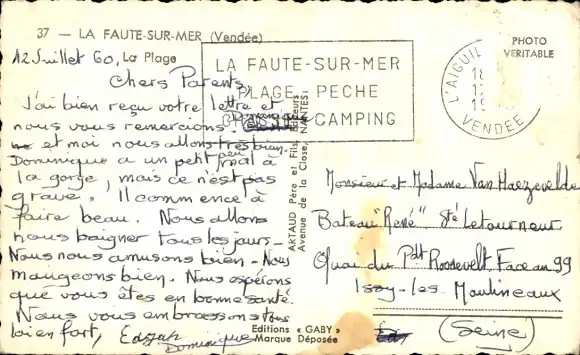 37 — LA FAUTE-SUR-MER (Vendée)
La Plage
12 Juillet 60,
Chers Parents
J'ai bien reçu votre lettre et
nous vous remercions. Dominique
et moi nous allons très bien.
Dominique a un petit peu mal à
la gorge, mais ce n'est pas
grave. Il commence à
faire beau. Nous allons
nous baigner tous les jours-
Nous nous amusons bien - Nous
mangeons bien. Nous espérons
que vous êtes en bonne santé.
Nous vous embrassons tous
bien fort, Edgar
Dominique
LA FAUTE-SUR-MER
PLAGE PECHE
CAMPING
L'AIGUIL
VENDEE
PHOTO
VERITABLE
ARTAUD Père et Fils, Editeurs
Avenue de la Close, NANTES
Monsieur et Madame Van Haezevelde
Bateau "René" Sté Letourneur
Quai du Pdt Roosevelt, Face au 99
Issy-les-Moulineaux
(Seine)
Editions « GABY »
Marque Déposée